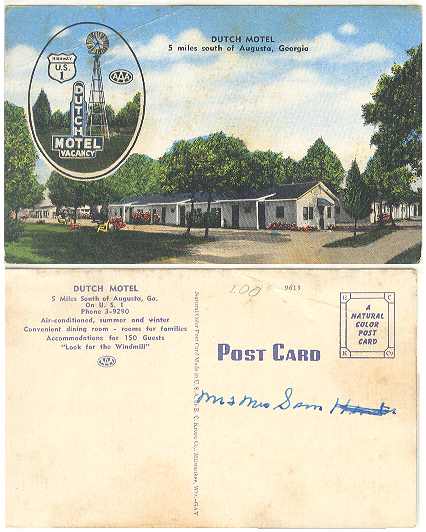 DUTCH MOTEL
5 miles south of Augusta, Georgia
HIGHWAY
U.S.
1
AAA
DUTCH
MOTEL
VACANCY
DUTCH MOTEL
5 Miles South of Augusta, Ga.
On U. S. 1
Phone 3-9290
Air-conditioned, summer and winter
Convenient dining room - rooms for families
Accommodations for 150 Guests
"Look for the Windmill"
AAA
100
9613
POST CARD
A
NATURAL
COLOR
POST
CARD
E. C.
K. Co.
Mr & Mrs Sam